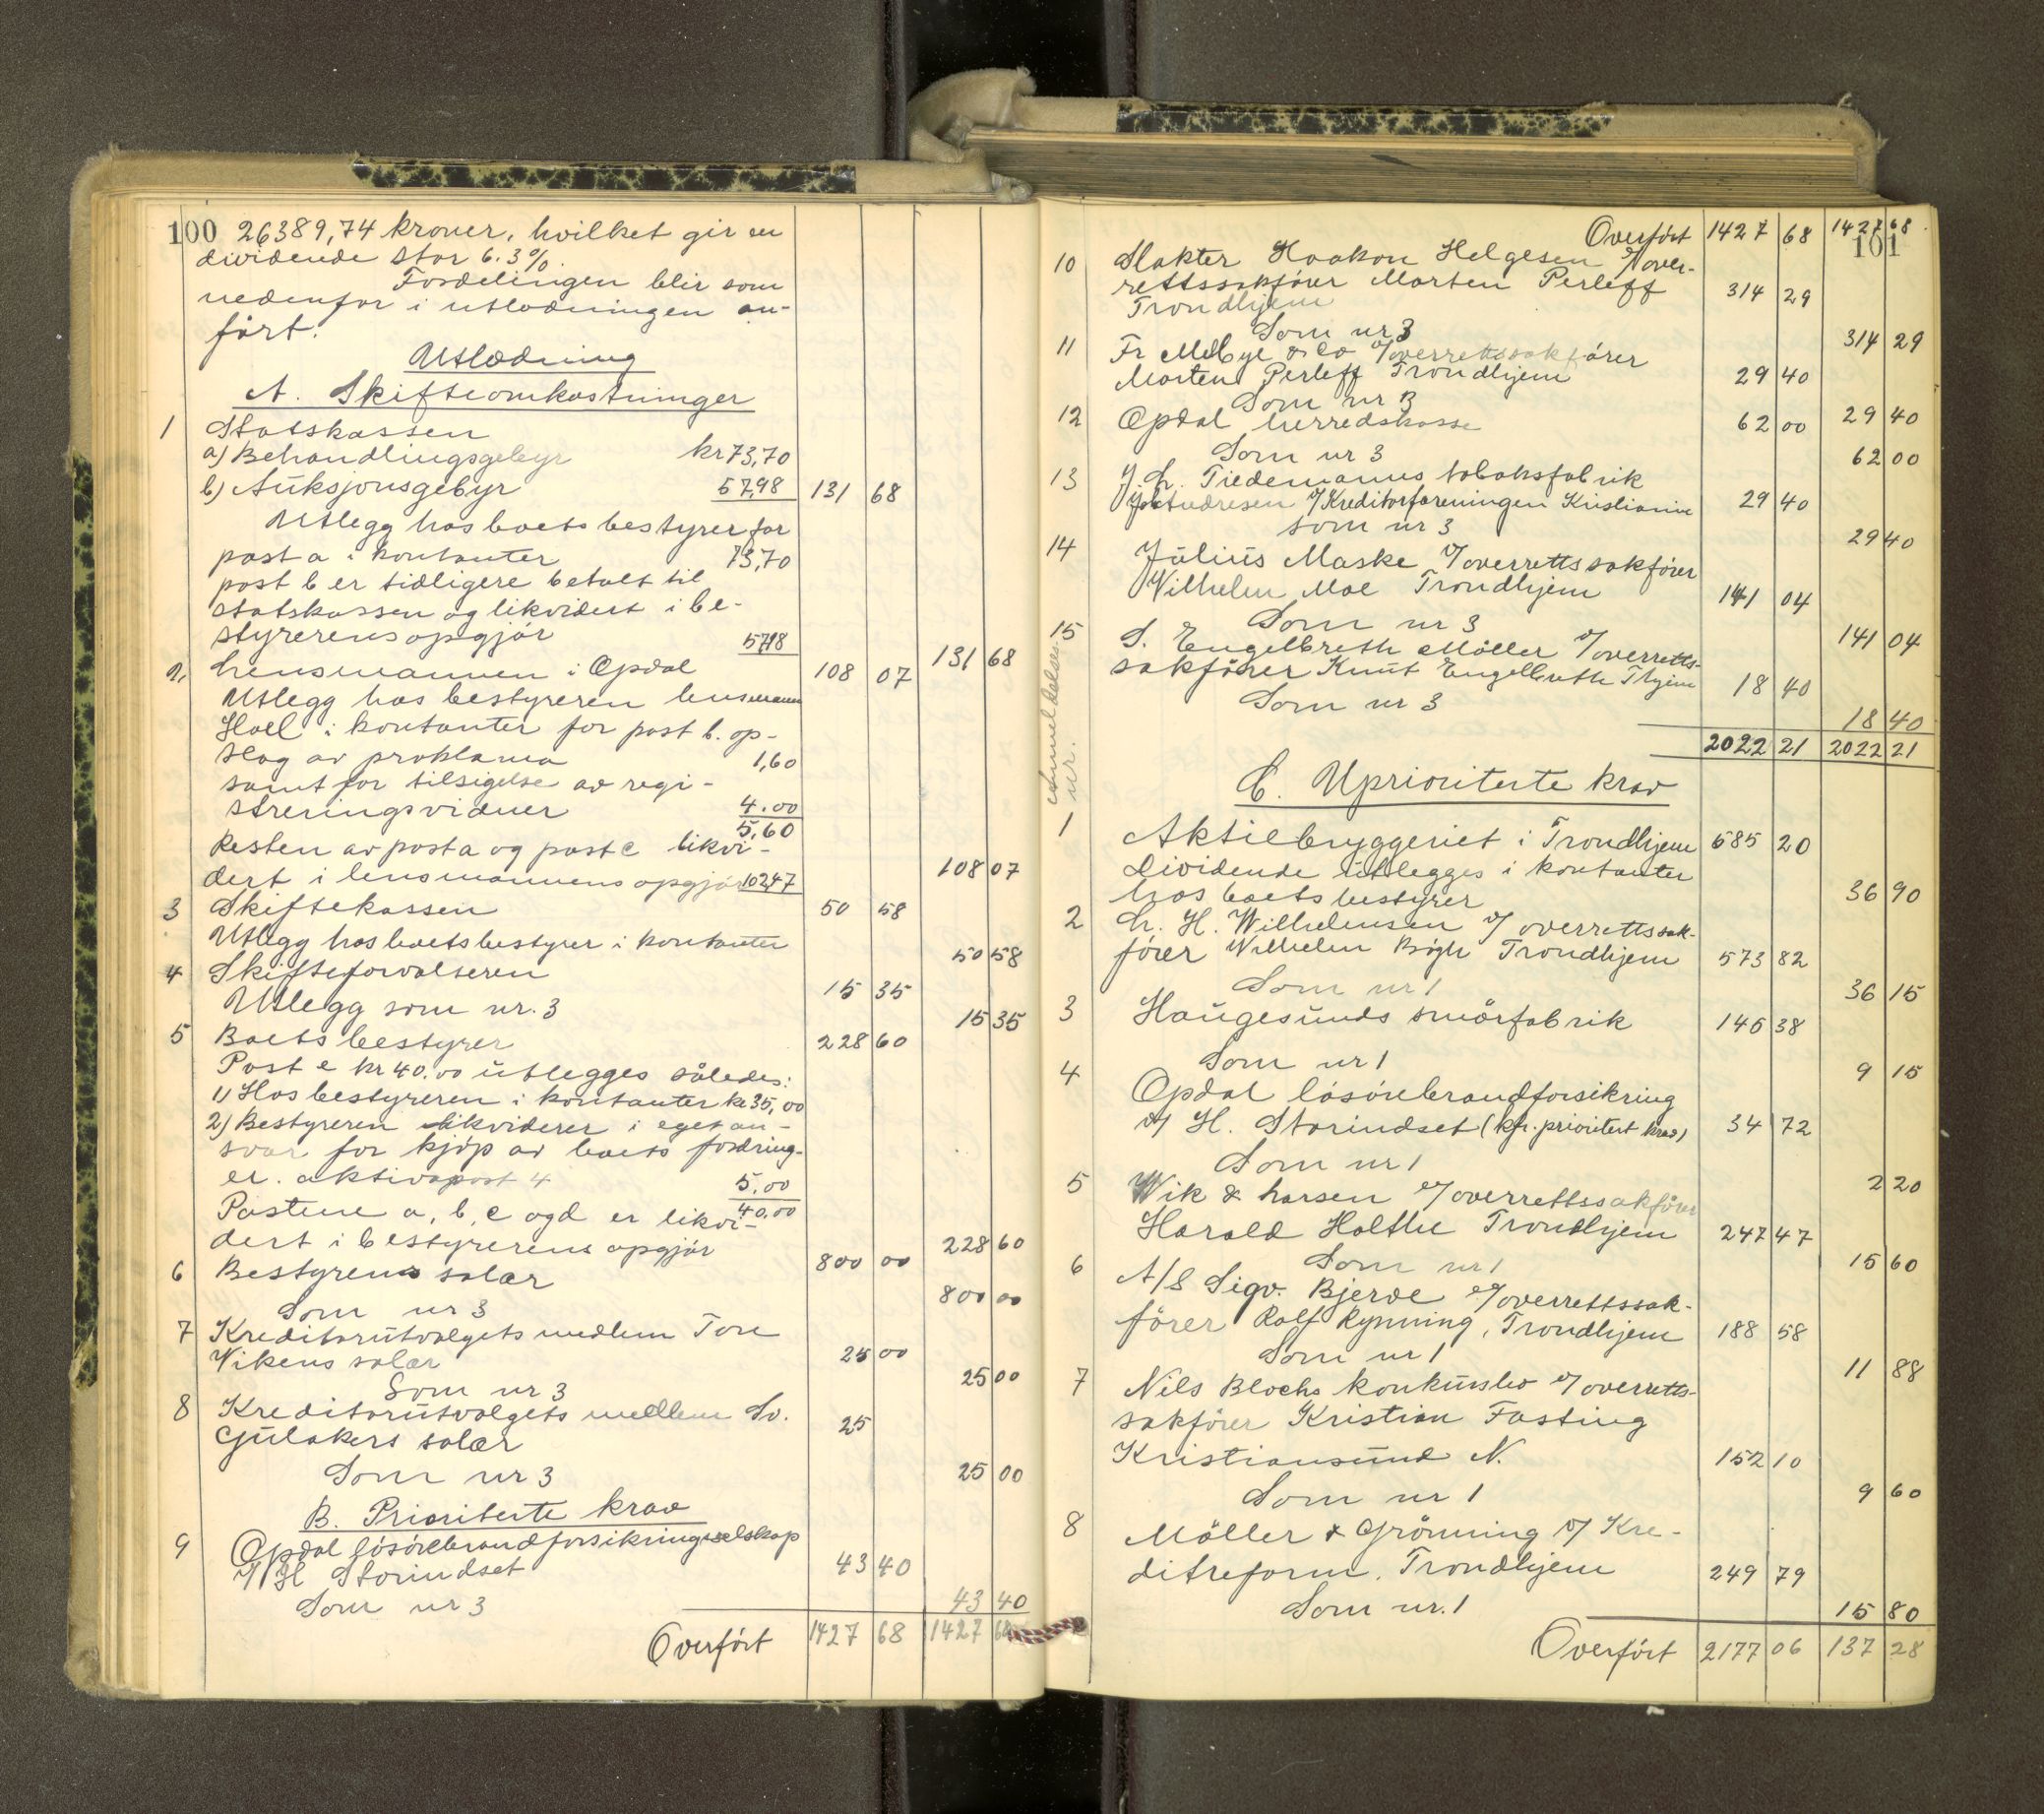 100 26389,74 kroner, hvilket gir en
dividende stor 6.3%.
Fordelingen blir som
nedenfor i utlodningen an-
ført.
Utlodning
A. Skifteomkostninger
1 Statskassen
a) Behandlingsgebyr kr 73,70
b) Auksjonsgebyr 57,98 131 68
Utlegg hos boets bestyrer for
post a i kontanter 73,70
post b er tidligere betalt til
statskassen og likvidert i be-
styrerens opgjør 57,98 131 68
2, Lensmannen i Opdal 108 07
Utlegg hos bestyreren lensmann
Hoel i kontanter for post b. op-
slag av proklama 1,60
samt for tilsigelse av regi-
streringsvidner 4.00
5,60
Resten av post a og post c likvi-
dert i lensmannens opgjør 102,47 108 07
3 Skiftekassen 50 58
Utlegg hos boets bestyrer i kontanter 50 58
4 Skifteforvalteren 15 35
Utlegg som nr. 3 15 35
5 Boets bestyrer 228 60
Post e kr 40.00 utlegges således:
1) Hos bestyreren i kontanter kr 35,00
2) Bestyreren likviderer i eget an-
svar for kjøp av boets fordring-
er. aktivapost 4 5,00
40,00
Postene a, b, c og d er likvi-
dert i bestyrerens opgjør 228 60
6 Bestyrens salær 800 00
Som nr 3 800 00
7 Kreditorutvalgets medlem Tore
Vikens salær 25 00
Som nr 3 25 00
8 Kreditorutvalgets medlem Sv.
Gulakers salær 25
Som nr 3 25 00
B. Prioriterte krav
9 Opdal løsørebrandforsikringsselskap
v/ H Storindset 43 40
Som nr 3 43 40
Overført 1427 68 1427 68
101
Overført 1427 68 1427 68
10 Slakter Haakon Helgesen v/ over-
rettssakfører Morten Perleff 314 29
Trondhjem
Som nr 3 314 29
11 Fr Melbye & Co v/ overrettssakfører
Morten Perleff Trondhjem 29 40
Som nr 3 29 40
12 Opdal herredskasse 62 00
Som nr 3 62 00
13 J. L. Tiedemanns tobaksfabrik
Joh Andresen v/ Kreditorforeningen Kristiania 29 40
som nr 3 29 40
14 Julius Maske v/ overrettssakfører
Wilhelm Moe Trondhjem 141 04
Som nr 3 141 04
15 S. Engelbreth Møller v/ overretts-
sakfører Knut Engelbreth Thjem 18 40
Som nr 3 18 40
2022 21 2022 21
Anmeldelses nr.
C. Uprioriterte krav
1 Aktiebryggeriet i Trondhjem 585 20
Dividende utlegges i kontanter
hos boets bestyrer 36 90
2 L. H. Wilhelmsen v/ overrettssak-
fører Wilhelm Bøgh Trondhjem 573 82
Som nr 1 36 15
3 Haugesunds smørfabrik 145 38
Som nr 1 9 15
4 Opdal løsørebrandforsikring
v/ H. Storindset (kfr. prioritert krav) 34 72
Som nr 1 2 20
5 Wik & Larsen v/ overrettssakfører
Harald Holthe Trondhjem 247 47
Som nr 1 15 60
6 A/S Sigv. Bjerve v/ overrettssak-
fører Rolf Rynning, Trondhjem 188 58
Som nr 1 11 88
7 Nils Blochs konkursbo v/ overretts-
sakfører Kristian Fasting
Kristiansund N. 152 10
Som nr 1 9 60
8 Møller & Grønning v/ Kre-
ditreform, Trondhjem 249 79
Som nr. 1 15 80
Overført 2177 06 137 28